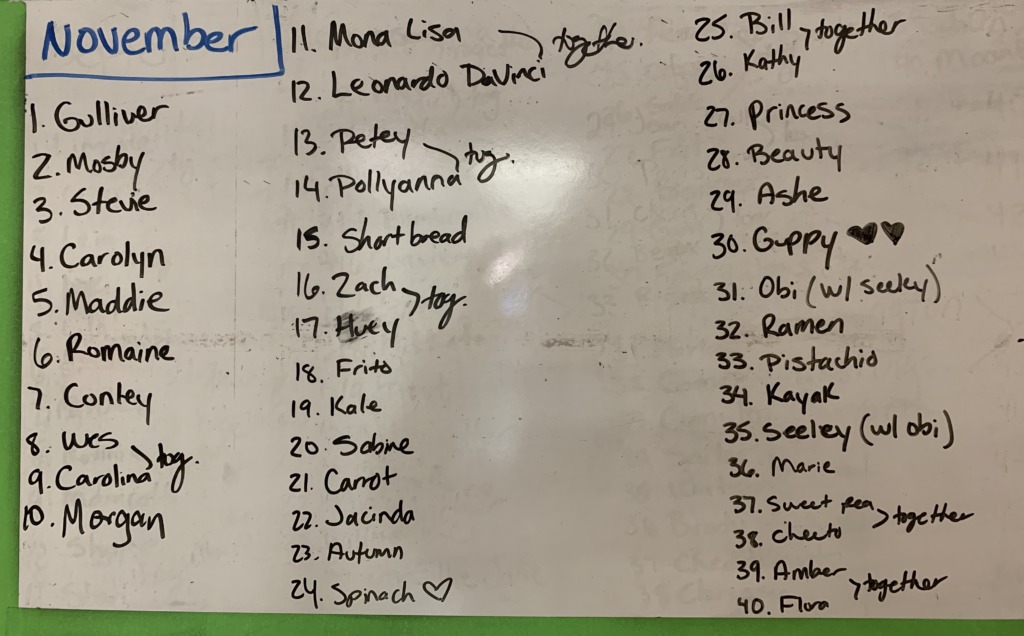 November
1. Gulliver
2. Mosby
3. Stevie
4. Carolyn
5. Maddie
6. Romaine
7. Conley
8. Wes
9. Carolina > tog.
10. Morgan
11. Mona Lisa
12. Leonardo DaVinci > together.
13. Petey
14. Pollyanna > tog.
15. Shortbread
16. Zach
17. Huey > tog.
18. Frito
19. Kale
20. Sabine
21. Carrot
22. Jacinda
23. Autumn
24. Spinach ♡
25. Bill > together
26. Kathy
27. Princess
28. Beauty
29. Ashe
30. Guppy ♥♥
31. Obi (w/ seeley)
32. Ramen
33. Pistachio
34. Kayak
35. Seeley (w/ obi)
36. Marie
37. Sweet pea > together
38. Cheeto
39. Amber > together
40. Flora